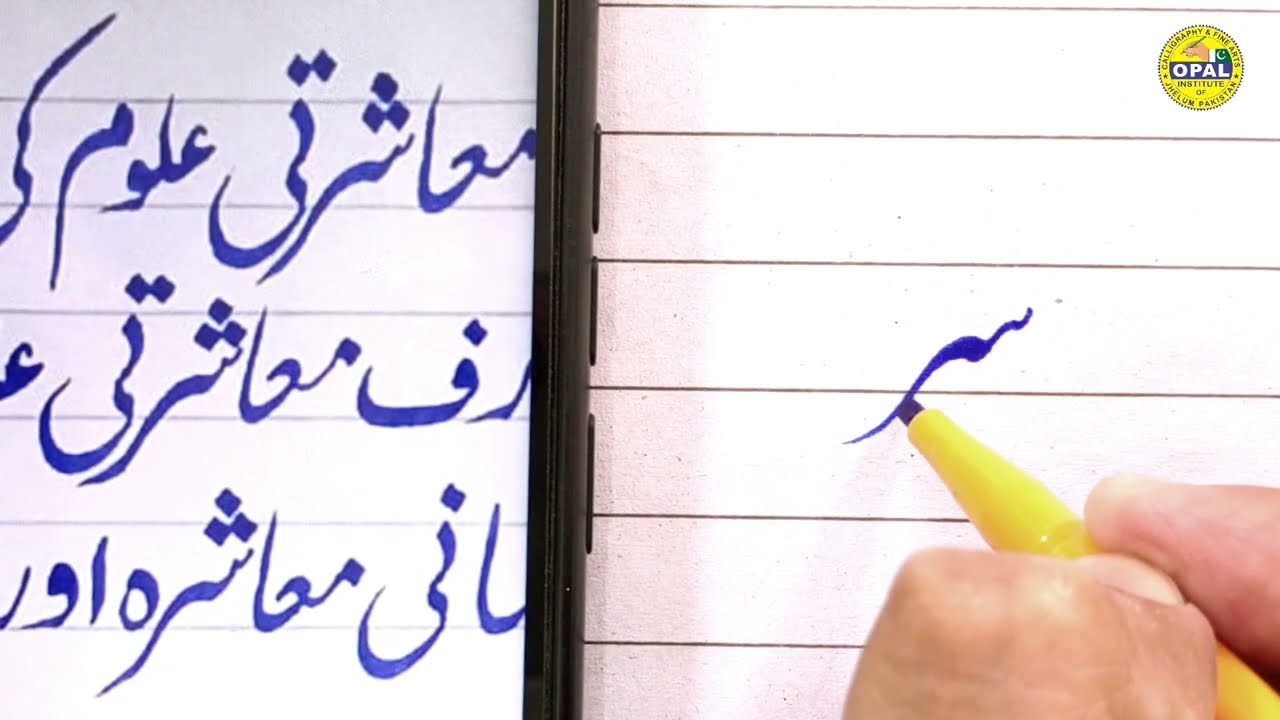 معاشرتی علوم کی
معاشرتی
انی معاشرہ اور
سر
CALLIGRAPHY & FINE ARTS
OPAL
INSTITUTE
OF
JHELUM PAKISTAN